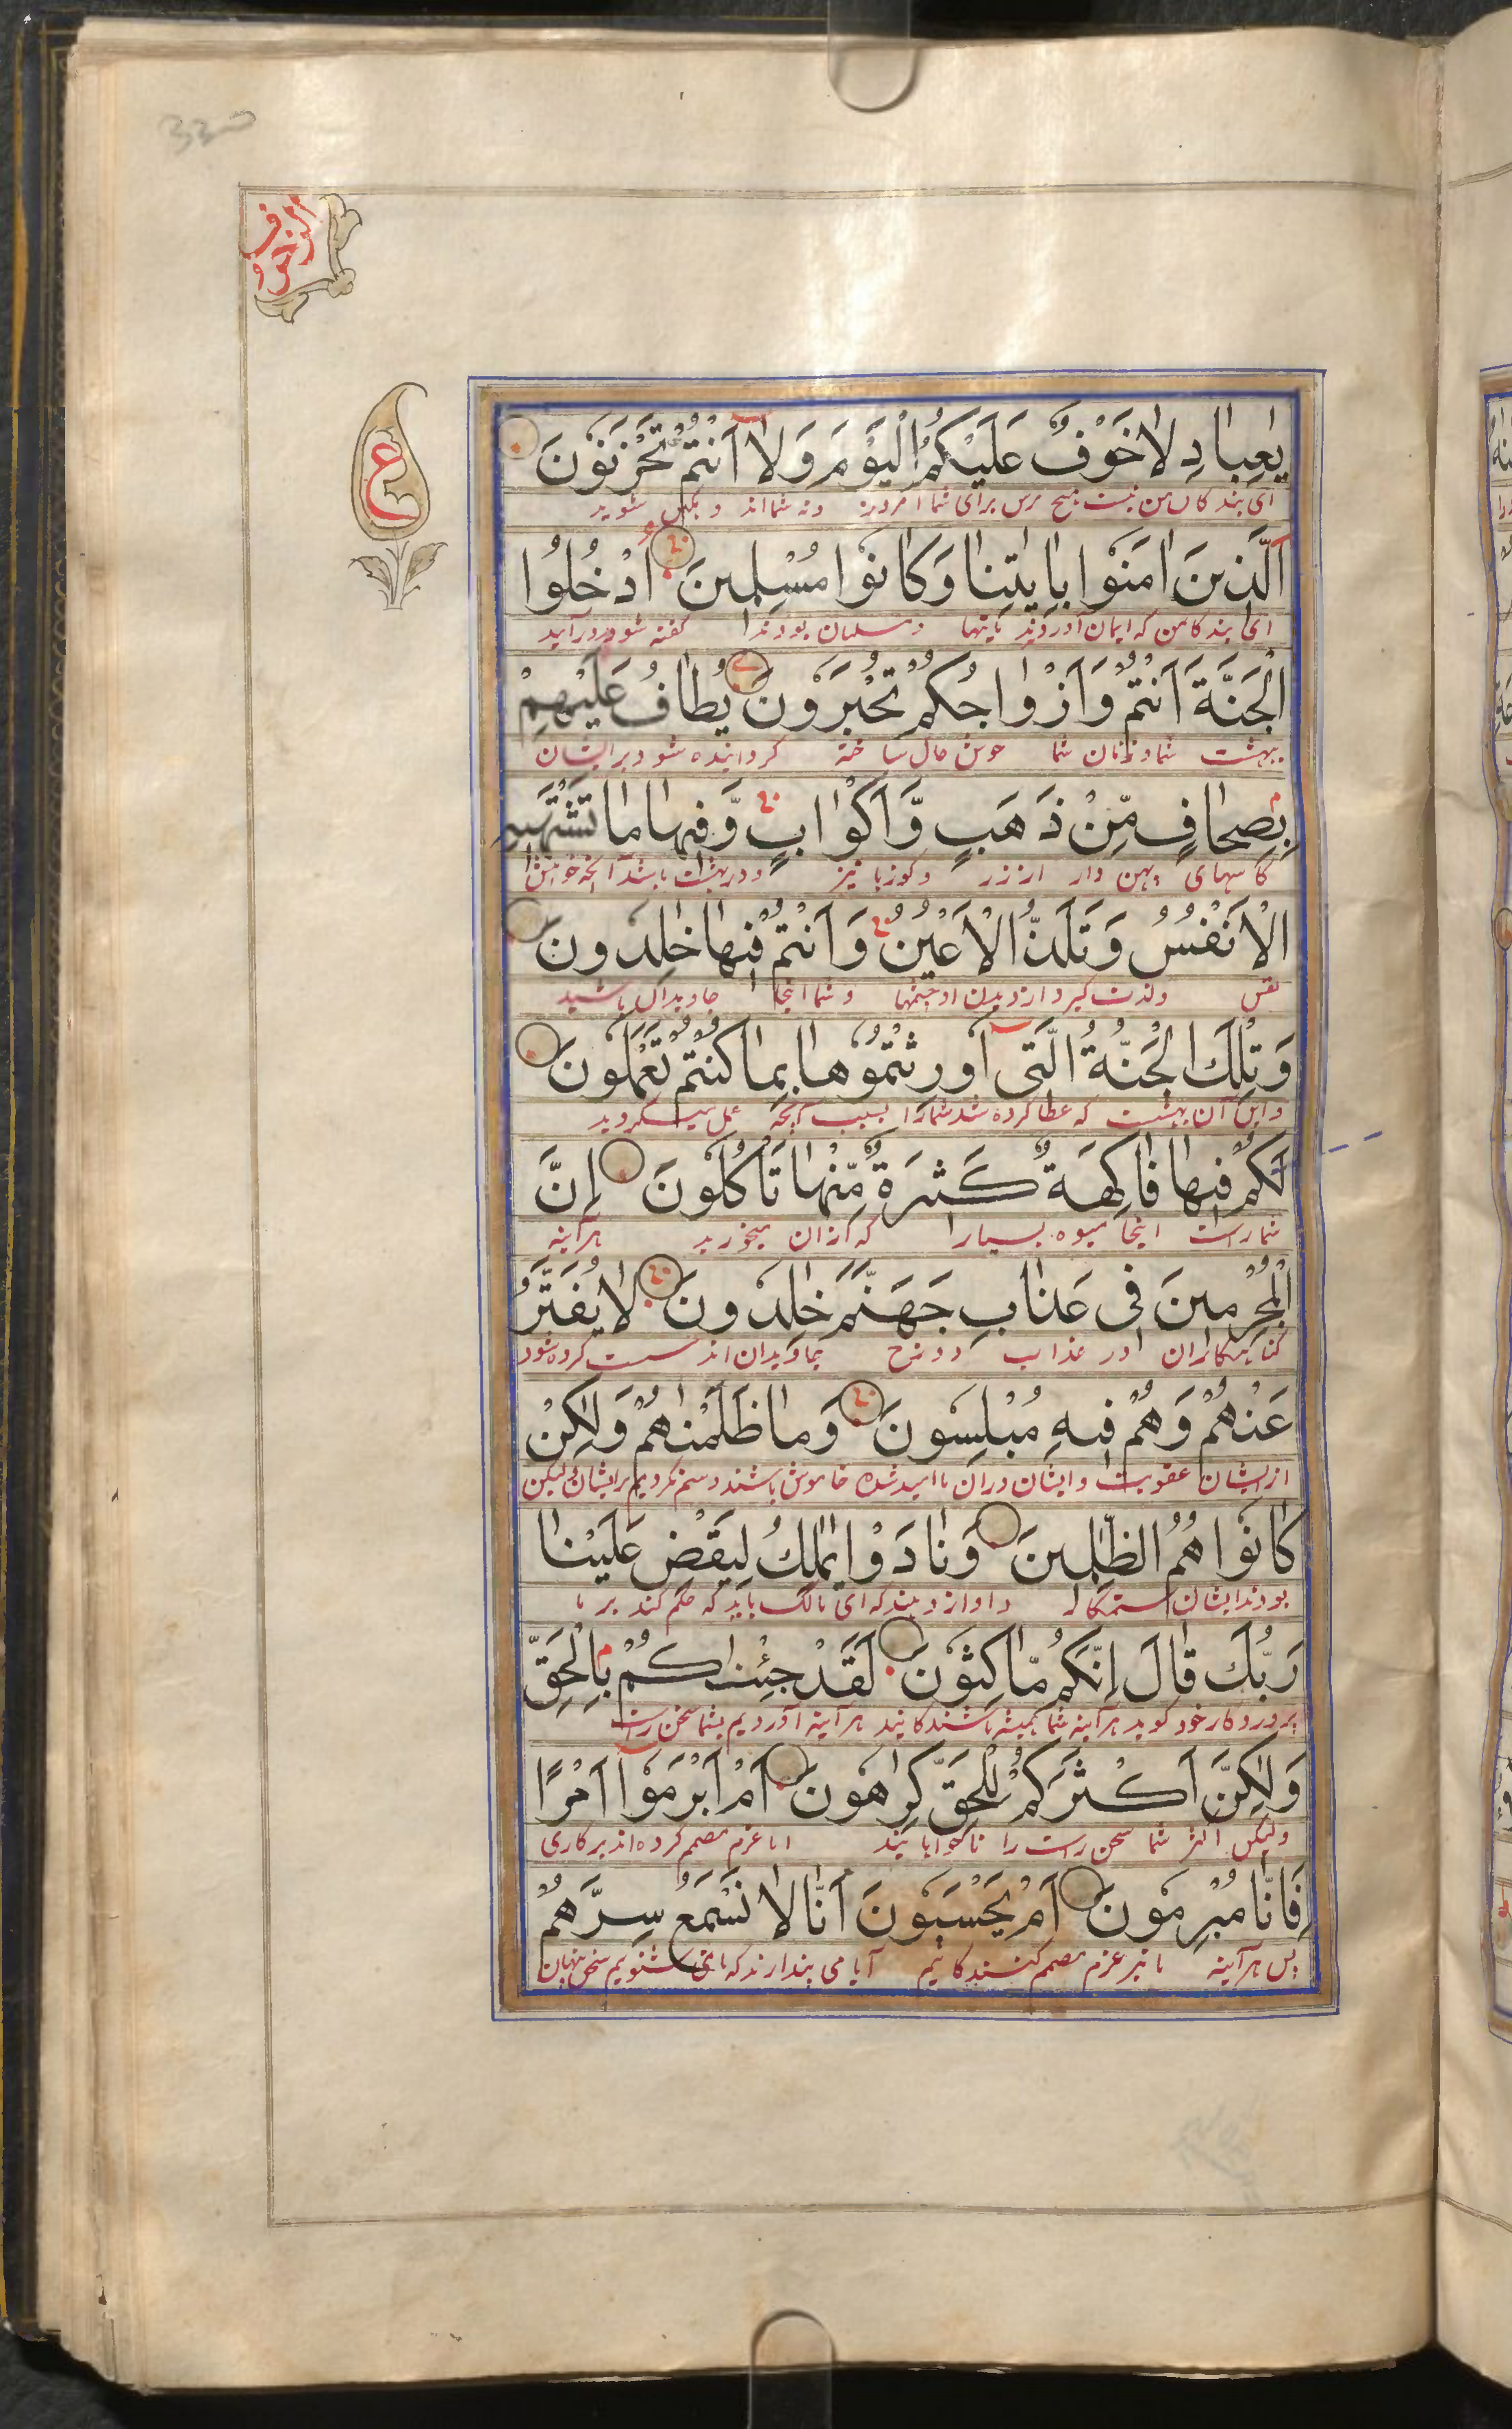 330
الزخرف
ع
يٰعِبادِ لا خَوْفٌ عَلَيْكُمُ الْيَوْمَ وَلا اَنْتُمْ تَحْزَنُونَ
ای بندکان من نیست هیچ ترس برای شما امروز ونه شما اند وهکین شوید
اَلَّذينَ اٰمَنُوا بِاٰيٰتِنا وَكانُوا مُسْلِمينَ اُدْخُلُوا
ای بندکا من که ایمان آوردند بایتها ومسلمان بودند کفته شود درآیید
الْجَنَّةَ اَنْتُمْ وَاَزْواجُكُمْ تُحْبَرُونَ يُطافُ عَلَيْهِمْ
ببهشت شما وزنان شما خوش حال ساخته کردانیده شود برایشان
بِصِحافٍ مِّنْ ذَهَبٍ وَّاَكْوابٍ وَّفيها ما تَشْتَهيهِ
کاسهای پهن دار از زر وکوزها نیز ودر بهشت باشد آنچه خواهش
الْاَنْفُسُ وَتَلَذُّ الْاَعْيُنُ وَاَنْتُمْ فيها خٰلِدُونَ
نفس ولذت کیرد از دیدن او چشمها وشما اینجا جاویدان باشید
وَتِلْكَ الْجَنَّةُ الَّتى اُورِثْتُمُوها بِما كُنْتُمْ تَعْمَلُونَ
واین آن بهشت که عطا کرده شد شما را بسبب آنچه عمل میکردید
لَكُمْ فيها فاكِهَةٌ كَثيرَةٌ مِّنْها تَأْكُلُونَ اِنَّ
شما راست اینجا میوه بسیار که از ان میخورید هرآینه
الْمُجْرِمينَ فى عَذابِ جَهَنَّمَ خٰلِدُونَ لا يُفَتَّرُ
کناهکاران در عذاب دوزخ جاویدان اند سست کرده شود
عَنْهُمْ وَهُمْ فيهِ مُبْلِسُونَ وَما ظَلَمْنٰهُمْ وَلٰكِنْ
از ایشان عقوبت وایشان دران ناامید شده خاموش باشند وستم نکردیم برایشان ولیکن
كانُوا هُمُ الظّٰلِمينَ وَنادَوْا يٰمٰلِكُ لِيَقْضِ عَلَيْنا
بودند ایشان ستمکار واواز دهند که ای مالک باید که حکم کند بر ما
رَبُّكَ قالَ اِنَّكُمْ مّاكِثُونَ لَقَدْ جِئْنٰكُمْ بِالْحَقِّ
پروردکار خود کوید هرآینه شما همیشه باشندکانید هرآینه آوردیم بشما سخن راست
وَلٰكِنَّ اَكْثَرَكُمْ لِلْحَقِّ كٰرِهُونَ اَمْ اَبْرَمُوا اَمْرًا
ولیکن اکثر شما سخن راست را ناخواهانید ایا عزم مصمم کرده اند بر کاری
فَاِنّا مُبْرِمُونَ اَمْ يَحْسَبُونَ اَنّا لا نَسْمَعُ سِرَّهُمْ
پس هرآینه ما نیز عزم مصمم کنندکانیم آیا می پندارند که ما نمی شنویم سخن پنهان